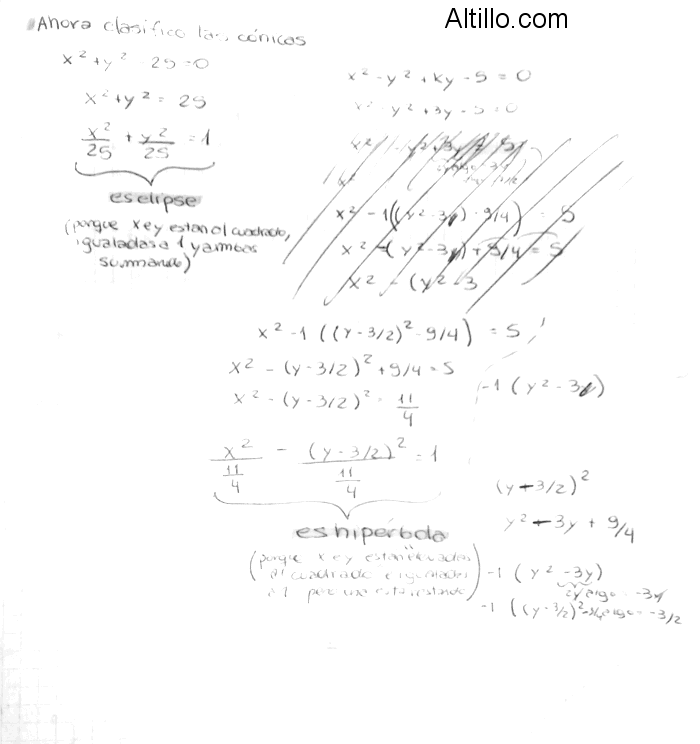 Altillo.com
Ahora clasifico las cónicas
x² + y² - 25 = 0
x² + y² = 25
x²/25 + y²/25 = 1
es elipse
(porque x e y estan al cuadrado,
igualadas a 1 y ambas
sumando)
x² - y² + ky - 5 = 0
x² - y² + 3y - 5 = 0
x² - 1((y² - 3y) - 9/4) = 5
x² - (y² - 3y) + 9/4 = 5
x² - (y² - 3
x² - 1 ((y - 3/2)² - 9/4) = 5
x² - (y - 3/2)² + 9/4 = 5
x² - (y - 3/2)² = 11/4
x²/(11/4) - (y - 3/2)²/(11/4) = 1
es hipérbola
(porque x e y estan elevadas
al cuadrado e igualadas
a 1 pero una esta restando)
-1 (y² - 3y)
(y - 3/2)²
y² - 3y + 9/4
-1 (y² - 3y)
= -3y
-1 ((y - 3/2)²
= -3/2